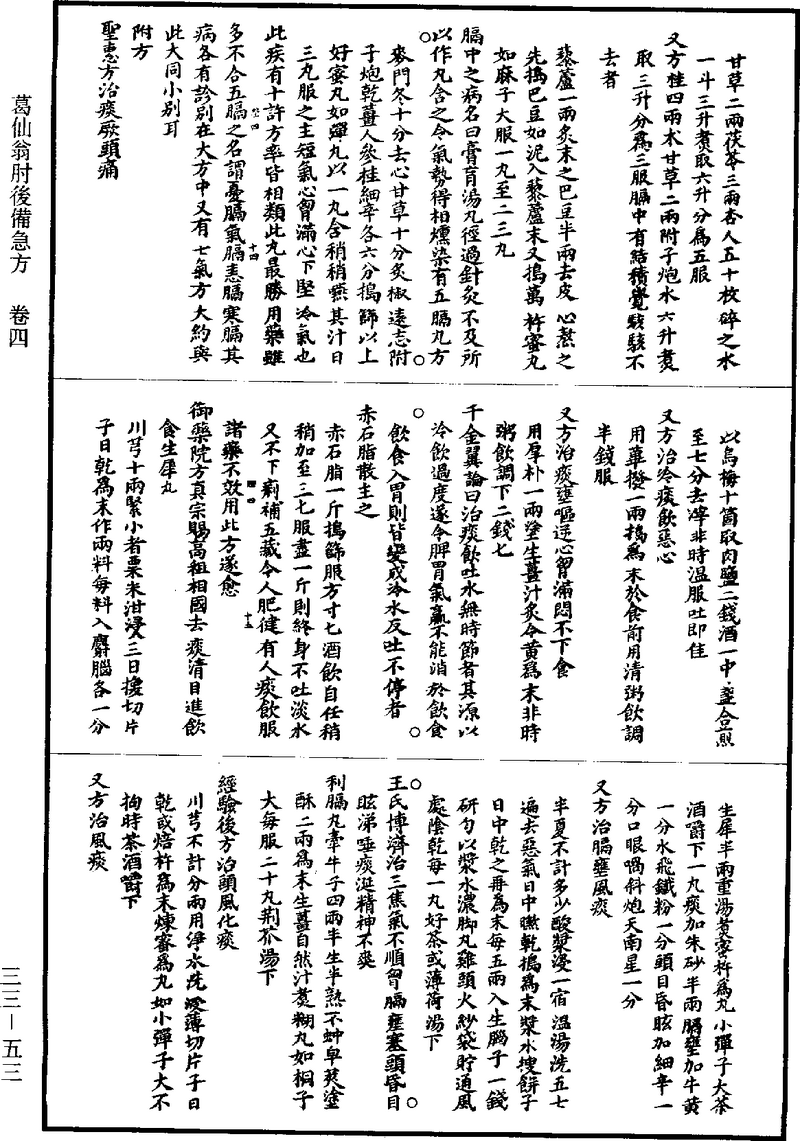 甘草二兩茯苓三兩杏人五十枚碎之水
一斗三升煮取六升分爲五服
又方桂四兩术甘草二兩附子炮水六升煮
取三升分爲三服膈中有結積覺駭駭不
去者
藜蘆一兩炙末之巴豆半兩去皮心熬之
先搗巴豆如泥入藜蘆末又搗萬杵蜜丸
如麻子大服一丸至二三丸
膈中之病名曰膏肓湯丸徑過針灸不及所
以作丸含之令氣勢得相燻染有五膈丸方
麥門冬十分去心甘草十分炙椒遠志附
子炮乾薑人參桂細辛各六分搗篩以上
好蜜丸如彈丸以一丸含稍稍嚥其汁日
三丸服之主短氣心胷滿心下堅冷氣也
此疾有十許方率皆相類此丸最勝用藥雖
多不合五膈之名謂憂膈氣膈恚膈寒膈其
病各有診別在大方中又有七氣方大約與
此大同小別耳
附方
聖惠方治痰厥頭痛
以烏梅十箇取肉鹽二錢酒一中盞合煎
至七分去滓非時温服吐即佳
又方治冷痰飲惡心
用蓽撥一兩搗爲末於食前用清粥飲調
半錢服
又方治痰壅嘔逆心胷滿悶不下食
用厚朴一兩塗生薑汁炙令黄爲末非時
粥飲調下二錢匕
千金翼論曰治痰飲吐水無時節者其源以
冷飲過度遂令脾胃氣羸不能消於飲食
飲食入胃則皆變成冷水反吐不停者
赤石脂散主之
赤石脂一斤搗篩服方寸匕酒飲自任稍
稍加至三匕服盡一斤則終身不吐淡水
又不下痢補五藏令人肥健有人痰飲服
諸藥不效用此方遂愈
御藥院方真宗賜高祖相國去痰清目進飲
食生犀丸
川芎十兩緊小者粟米泔浸三日換切片
子日乾爲末作兩料每料入麝腦各一分
生犀半兩重湯煮蜜杵爲丸小彈子大茶
酒嚼下一丸痰加朱砂半兩膈壅加牛黄
一分水飛鐵粉一分頭目昏眩加細辛一
分口眼喎斜炮天南星一分
又方治膈壅風痰
半夏不計多少酸漿浸一宿温湯洗五七
遍去惡氣日中㬠乾搗爲末漿水搜餅子
日中乾之再為末每五兩入生腦子一錢
研勻以漿水濃脚丸雞頭大紗袋貯通風
處陰乾每一丸好茶或薄荷湯下
王氏博濟治三焦氣不順胷膈壅塞頭昏目
眩涕唾痰涎精神不爽
利膈丸牽牛子四兩半生半熟不蚛皁莢塗
酥二兩爲末生薑自然汁煮糊丸如桐子
大每服二十丸荆芥湯下
經驗後方治頭風化痰
川芎不計分兩用淨水洗浸薄切片子日
乾或焙杵爲末煉蜜爲丸如小彈子大不
拘時茶酒嚼下
又方治風痰
葛仙翁肘後備急方 卷四
三三－五三